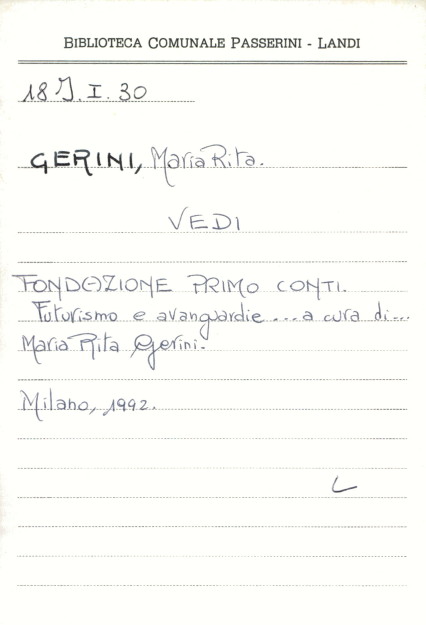 BIBLIOTECA COMUNALE PASSERINI - LANDI
18 J. I. 30
GERINI, Maria Rita.
VEDI
FONDAZIONE PRIMO CONTI.
Futurismo e avanguardie ... a cura di ...
Maria Rita Gerini.
Milano, 1992.
L